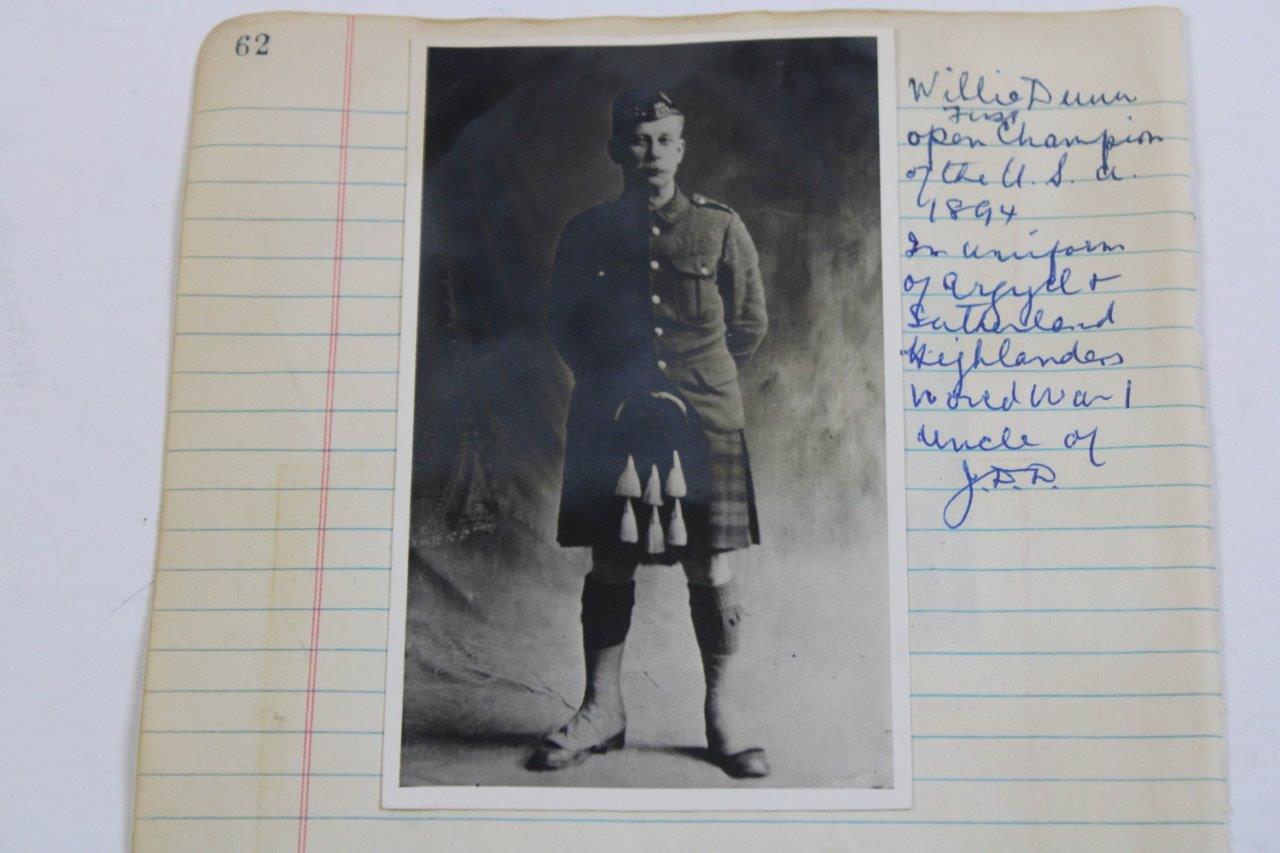 62
Willie Dunn
First
open Champion
of the U. S. A.
1894
In uniform
of Argyll +
Sutherland
Highlanders
World War 1
Uncle of
J.D.D.